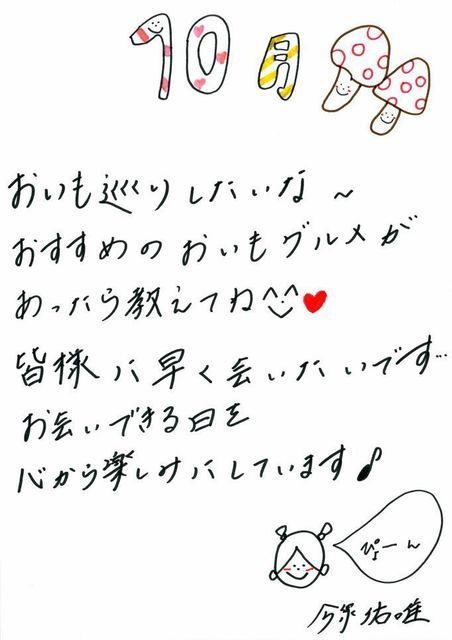 10月
おいも巡りしたいな～
おすすめのおいもグルメが
あったら教えてね^^♥
皆様に早く会いたいです…
お会いできる日を
心から楽しみにしています♪
ぴょーん
今泉佑唯